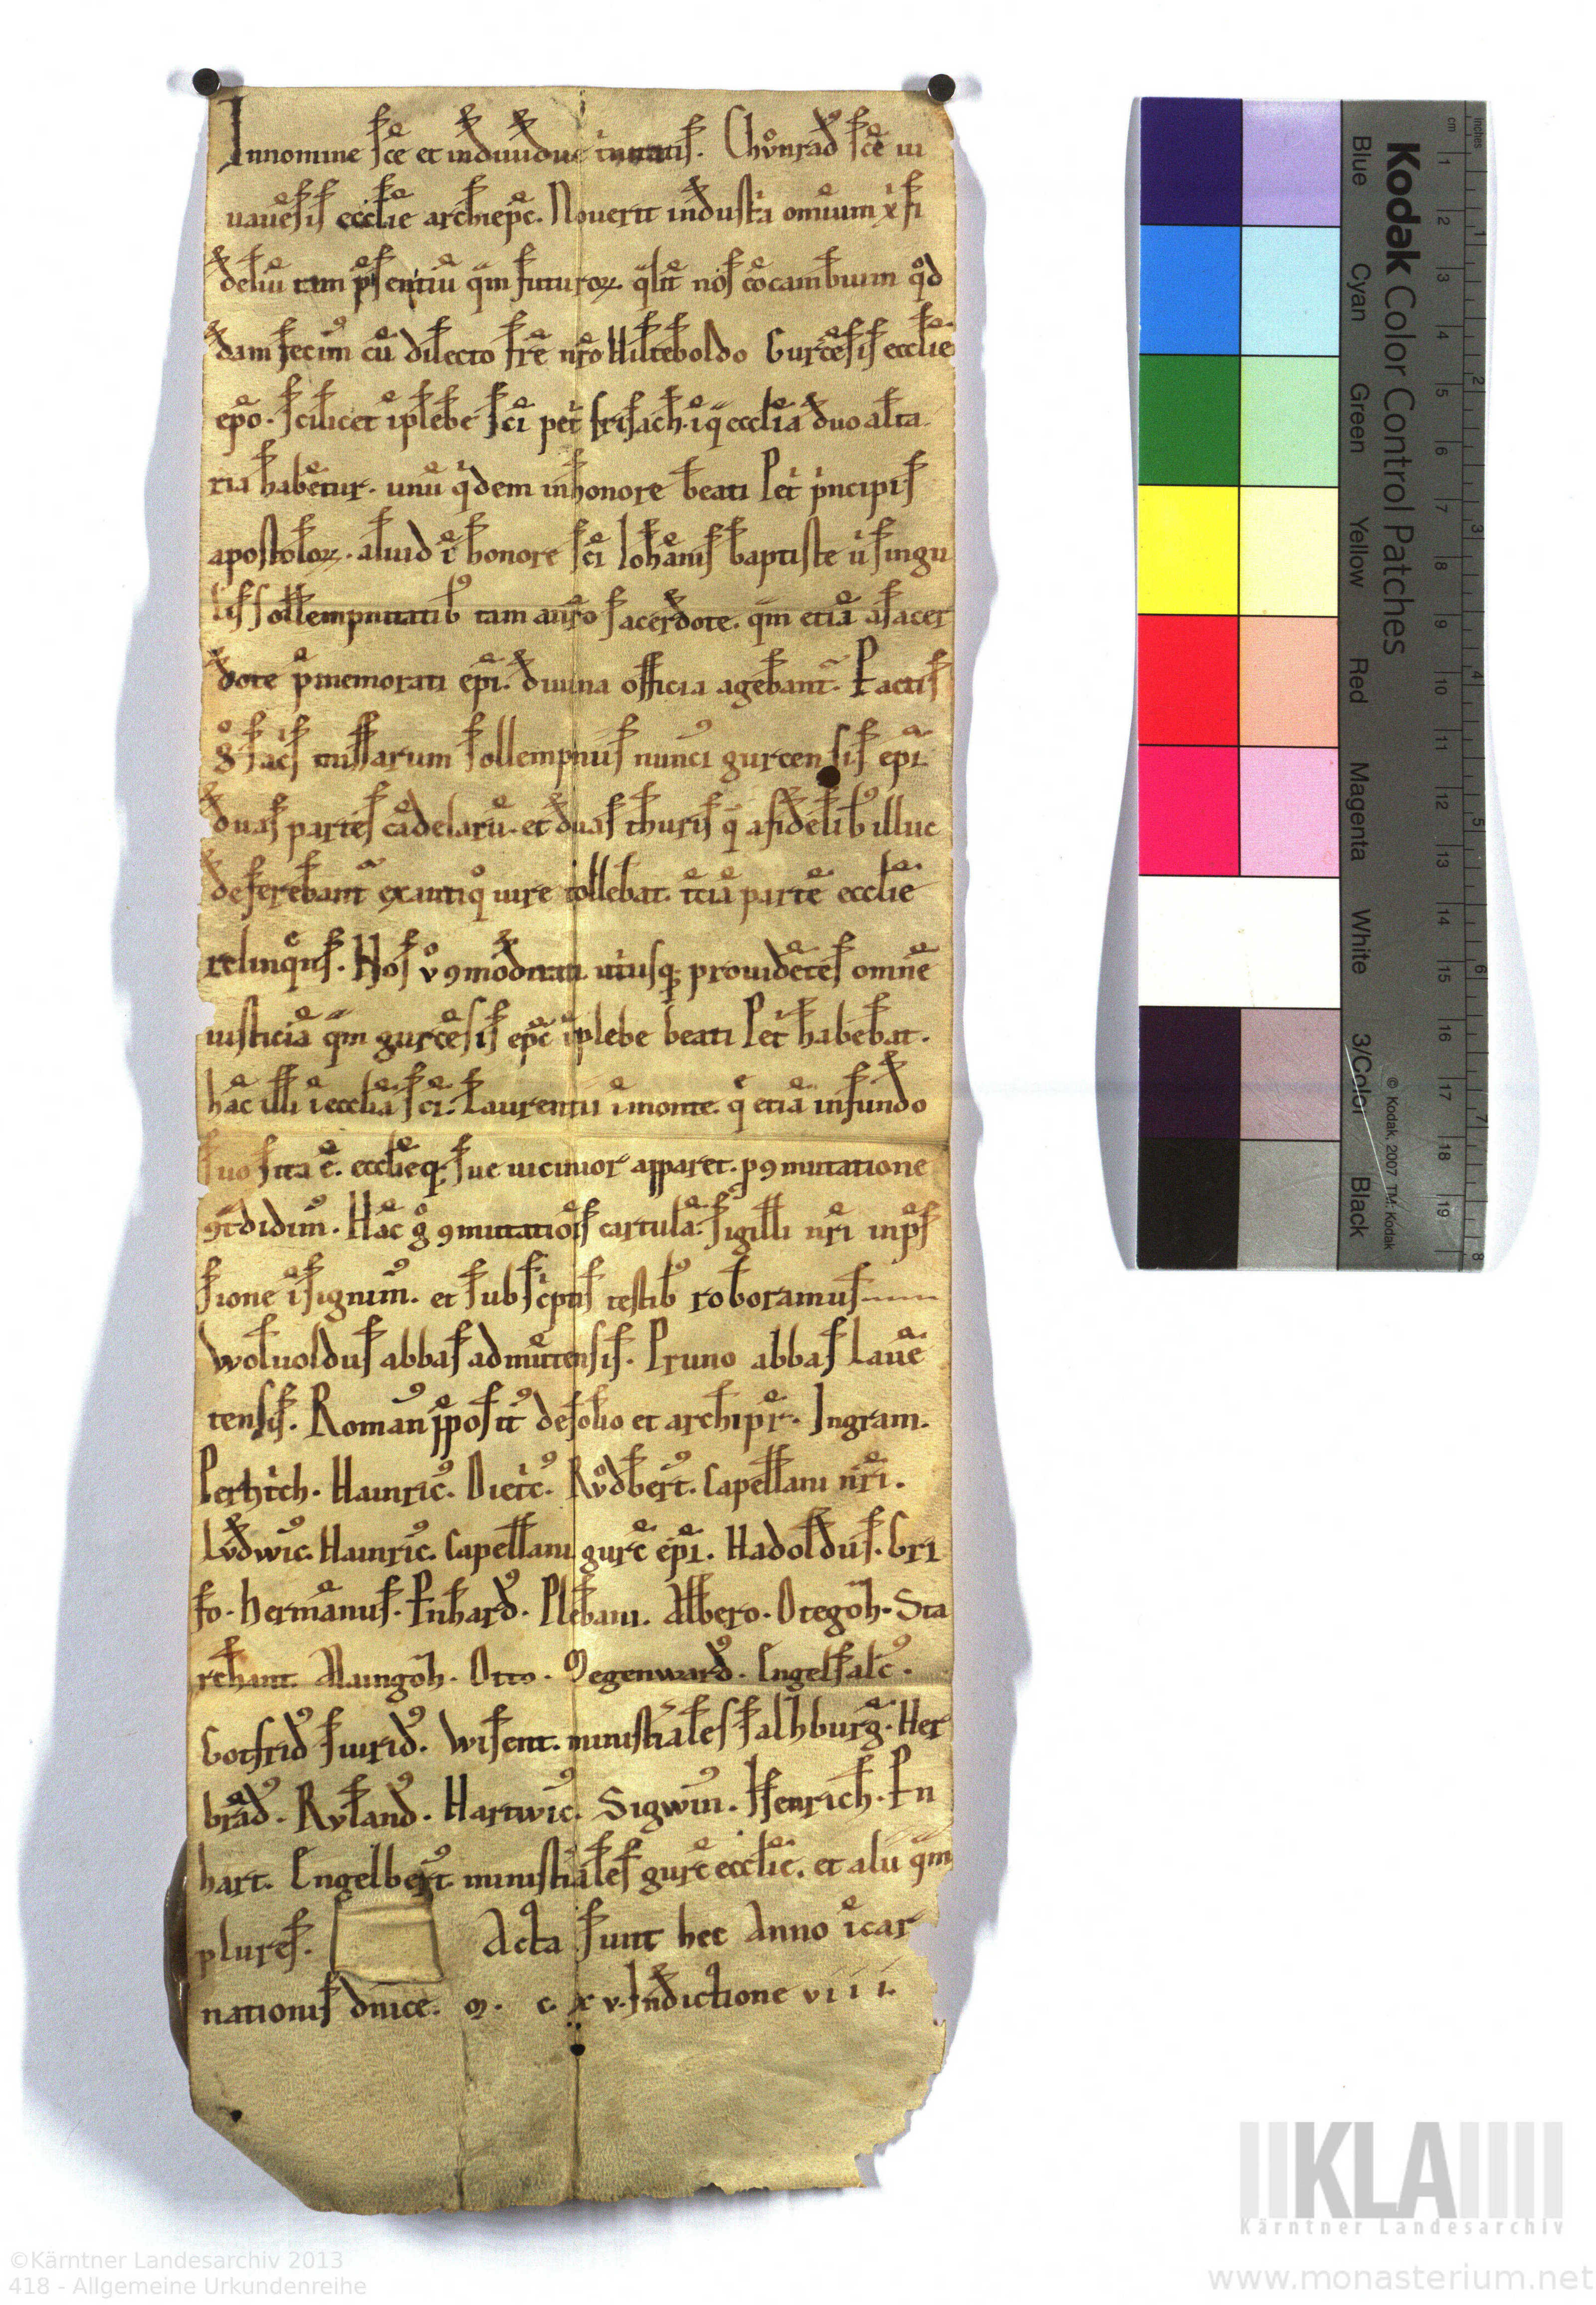 Innomine sc̄e et indiuidue trinitatis. Chvͦnrad sc̄e iu
uauēsis eccl̄ie archiep̄c. Nouerit industͥa omīum xp̄i fi
deliū tam p̄sentiū q̄m futuroꝝ. qͣlit̄ nos c̄ocambium qͦd
dam fecim᾽ cū dilecto fr̄e nr̄o Hilteboldo Gurcēsis eccl̄ie
ep̄o. scilicet ī plebe sc̄i petͥ frisach. ī q̄ eccl̄ia duo alta
ria habētur. unū qͥdem in honore beati Petͥ pͥncipis
apostoloꝝ. aliud ī honore sc̄i Iohānis baptiste uͥ singu
lis sollempnitatib᾽ tam a nr̄o sacerdote. q̄m etiā a sacer
dote p̄memorati ep̄i. diuina officia agebant᷑. Factis
gͦ sacͥs missarum sollempniis nunci᾽ gurcensis ep̄i
duas partes cādelarū. et duas thuris q̄ a fidelib᾽ illuc
deferebant᷑ ex antiqͦ iure tollebat. t̄ciā partē eccl̄ie
relinqͤns. Nos vͦ ꝯmoditati utͥusq; prouidētes omnē
iusticiā q̄m gurcēsis ep̄c ī plebe beati Petͥ habebat.
hāc illi ī eccl̄ia sc̄i Laurentii ī monte. qͤ etiā in fundo
suo sita ē. eccl̄ieq; sue uicinior apparet. p ꝯmutatione
ꝯt̄didim᾽. Hāc gͦ ꝯmutatiōis cartula. sigilli nr̄i inp̄s
sione īsignim᾽. et subscͥptis testib᾽ roboramus
Woluoldus abbas admūtensis. Pruno abbas Lauē
tensis. Roman᾽ p̄posit᾽ de solio et archipr̄. Ingram.
Perhtͥch. Hainric᾽. Dietͥc᾽. Rvͦdbert᾽. Capellani nr̄i.
Lvdwic᾽. Hainric᾽. Capellani gurc̄ ep̄i. Hadoldus. Gri
fo. Hermānus. Einhard᾽. Plebani. Albero. Otegōh. Sta
rchant. Maingōh. Otto. Megenward᾽. Engelsalc᾽.
Gotfrid᾽ siurid᾽. Wisent. ministͥales salhburḡ. Her
brād. Rvland᾽. Hartwic᾽. Sigwin᾽. Henrich. Ein
hart. Engelbert᾽ ministͥales gurc̄ eccl̄ie. et alii q̄m
plures. Acta sunt hec Anno īcar
nationis dn̄ice. M. c. xv. Indictione viii.
Kodak Color Control Patches
Blue Cyan Green Yellow Red Magenta White 3/Color Black
© Kodak, 2007 TM: Kodak
cm 1 2 3 4 5 6 7 8 9 10 11 12 13 14 15 16 17 18 19
Inches 1 2 3 4 5 6 7 8
KLA
Kärntner Landesarchiv
©Kärntner Landesarchiv 2013
418 - Allgemeine Urkundenreihe
www.monasterium.net